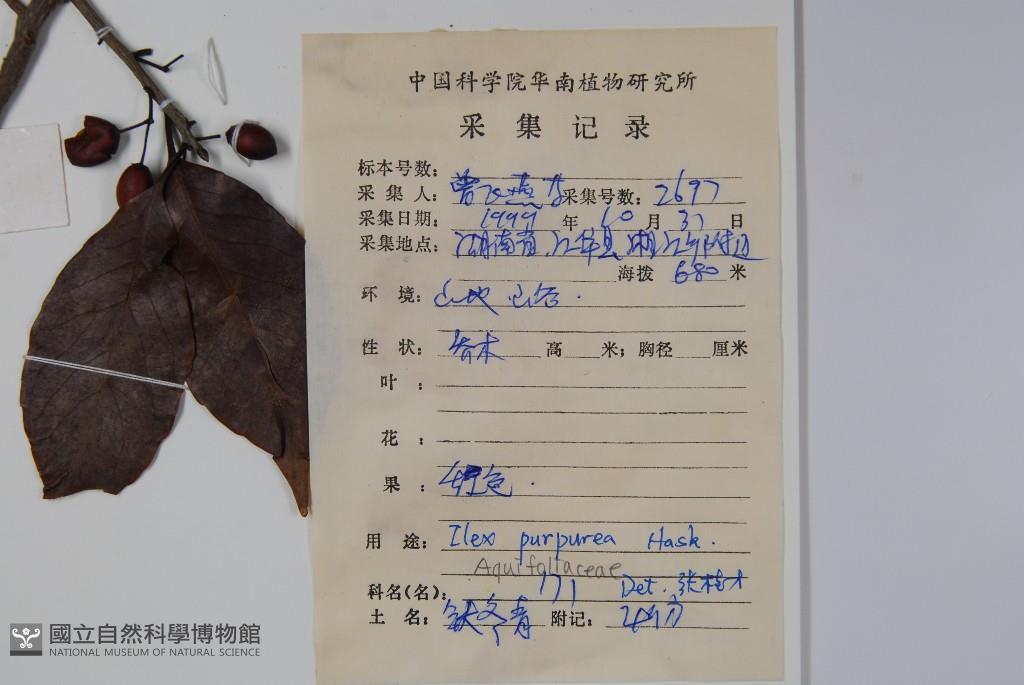 中国科学院华南植物研究所
采集记录
标本号数:
采集人: 曾飞燕 采集号数: 2697
采集日期: 1999 年 10 月 31 日
采集地点: 湖南省,江华县,湘江乡附近
海拨 680 米
环境: 山地 山谷.
性状: 乔木 高 米; 胸径 厘米
叶:
花:
果: 红色.
用途: Ilex purpurea Hask.
Aquifoliaceae
科名(名), 171 Det. 张桂才
土名: 冬青 附记:
國立自然科學博物館
NATIONAL MUSEUM OF NATURAL SCIENCE